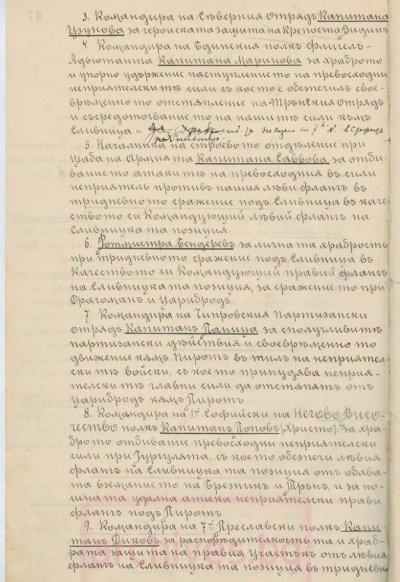 3. Командира на Северния отрядъ Капитана
Узунова за геройската защита на крепостьта Видинъ
4. Командира на Бдинския полкъ флигел-
Адютанта Капитана Маринова за храброто
и упорно удържание настѫплението на превосходни
неприятелски сили съ което обезпечил свое-
врѣменното отстѫпление на Трънския отрядъ
и съсредоточвание то на наши тѣ сили къмъ
Сливница и
5. Началника на строевото отдѣление при
щаба на Армията Капитана Саввова за отби-
вание то атаки тѣ на превосходния въ сили
неприятель противъ нашия лѣви флангъ въ
тридневно то сражение подъ Сливница въ каче-
ство то си Командующий лѣвий флангъ на
Сливнишката позиция
6. Ротмистра Бендеревъ за лична та храбрость
при тридневното сражение подъ Сливница въ
качеството си Командующий правий флангъ
на Сливнишката позиция, за сражение то при
Драгоманъ и Царибродъ.
7 Командира на Читровския Партизански
отрядъ Капитанъ Паница за сполучливитѣ
партизански дѣйствия и своевременно то
движение къмъ Пиротъ въ тилъ на неприяте-
лски тѣ войски, съ кое то принудява неприя-
телски тѣ главни сили да отстѫпятъ отъ
Царибродъ къмъ Пиротъ
8. Командира на 1й Софийски на Негово Висо-
чество полкъ Капитанъ Поповъ /Христо/ за хра-
брото отбивание превосходни неприятелски
сили при Гургулята, съ което обезпечи лѣвия
флангъ на Сливнишката позиция отъ обхва-
та вземание то на Брезникъ и Трънъ, и за но-
щна та удална атака неприятелски прави
флангъ подъ Пиротъ
9. Командира на 7й Преславски полкъ Капи-
танъ Диковъ за распоредителность та и храбро-
та защита на правия Участъкъ отъ лѣвия
флангъ на Сливнишка та позиция въ тридневни